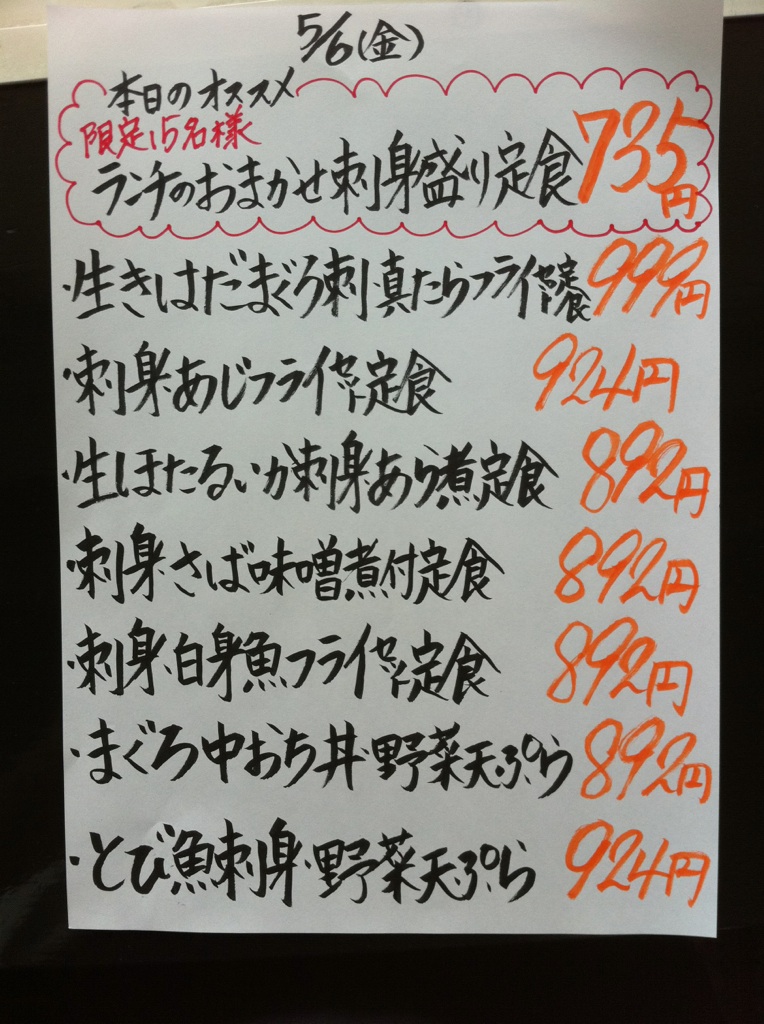 5/6(金)
本日のオススメ
限定15名様
ランチのおまかせ刺身盛り定食 735円
・生きはだまぐろ刺・真たらフライセット定食 999円
・刺身・あじフライセット定食 924円
・生ほたるいか刺身・あら煮定食 892円
・刺身・さば味噌煮付定食 892円
・刺身・白身魚フライセット定食 892円
・まぐろ中おち丼・野菜天ぷら 892円
・とび魚刺身・野菜天ぷら 924円